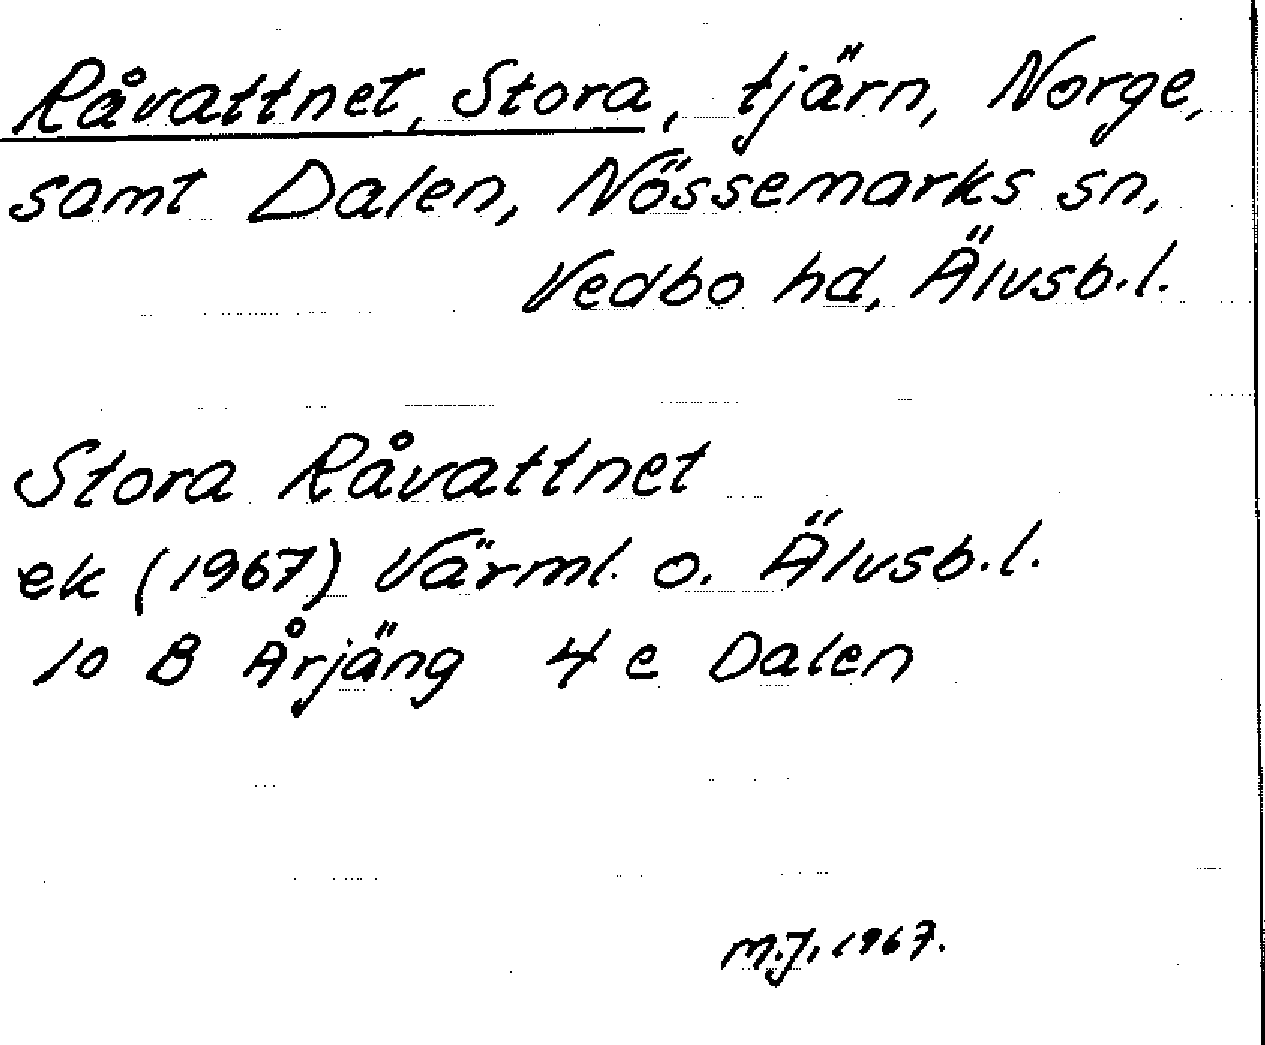 Råvattnet, Stora, tjärn, Norge,
samt Dalen, Nössemarks sn,
Vedbo hd, Älvsb.l.
Stora Råvattnet
ek (1967) Värml. o. Älvsb.l.
10 B Årjäng 4 e Dalen
M.J, 1967.